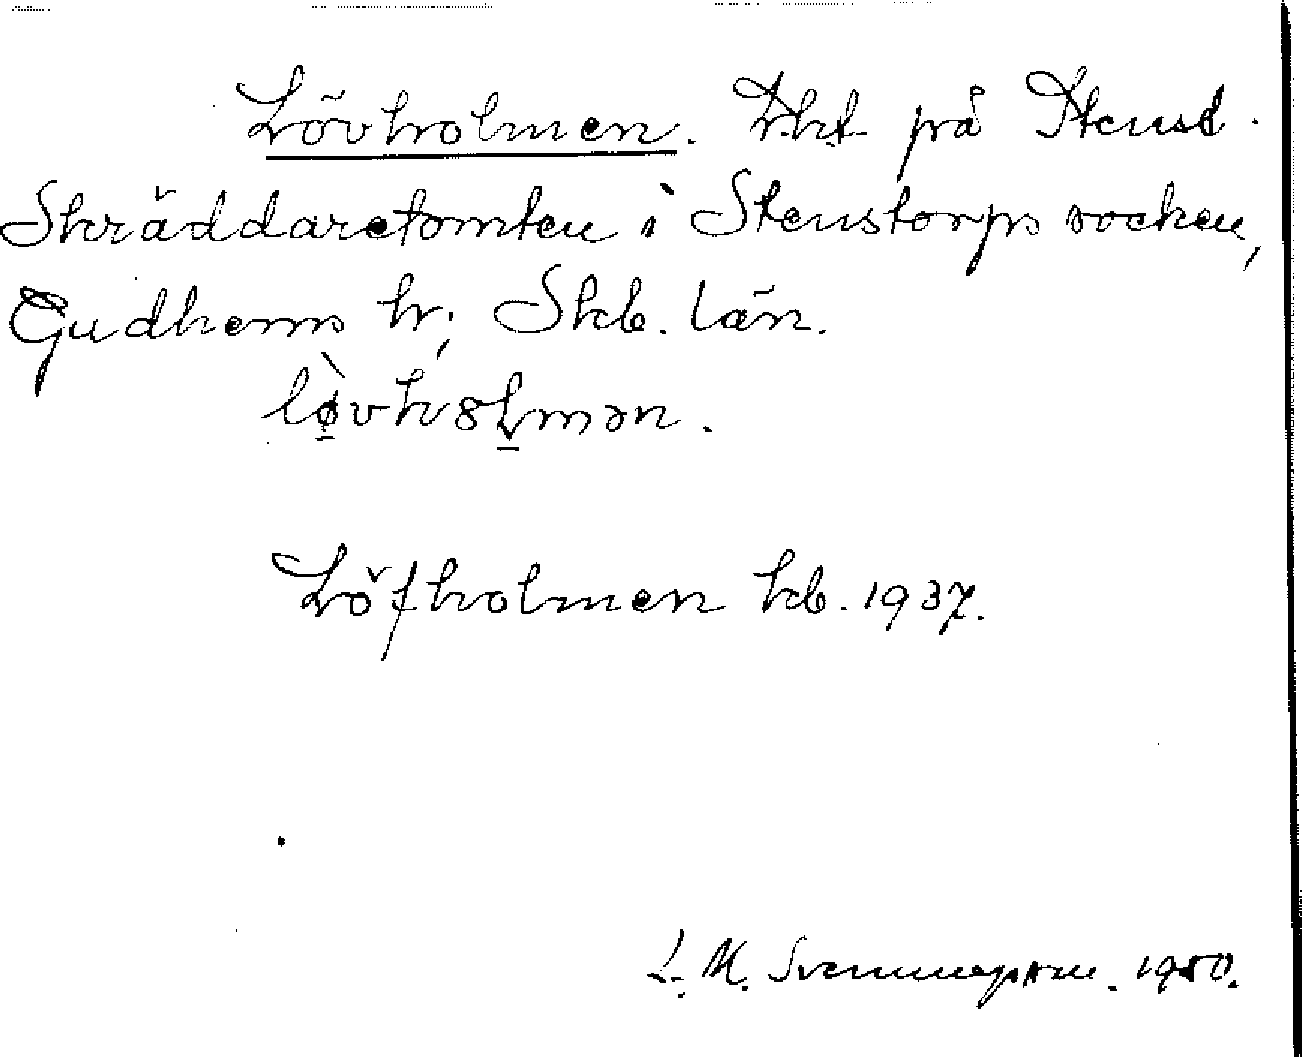 Lövholmen. Lht på Stenst.
Skräddaretomten i Stenstorps socken,
Gudhems hr, Skb. län.
lø̀vhɔl̠mən.
Löfholmen kb. 1937.
L. M. Svenungsson. 1950.